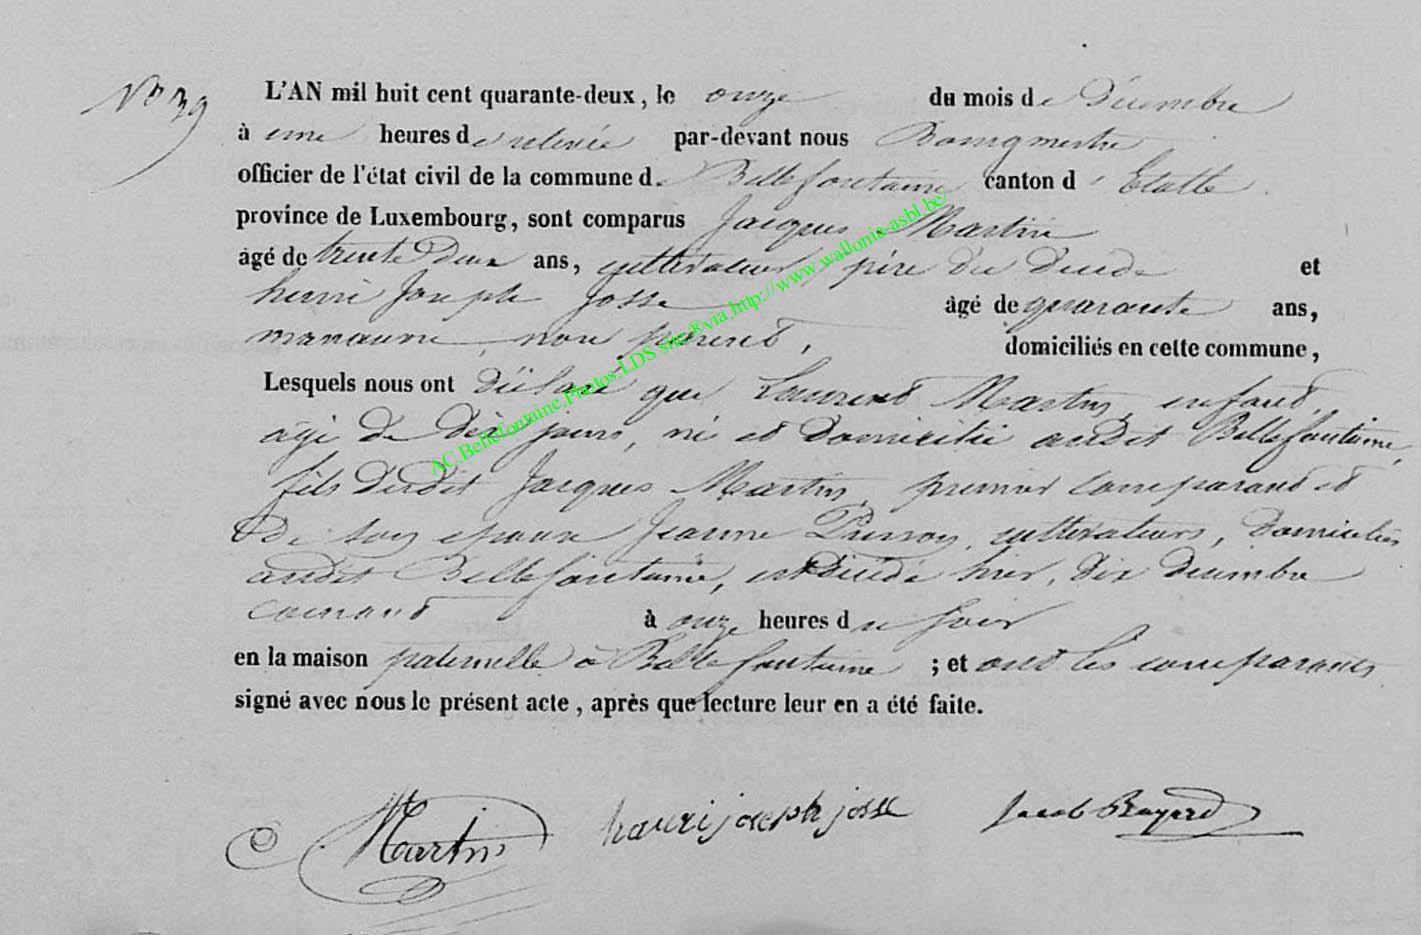 N° 39
L'AN mil huit cent quarante-deux, le onze du mois de Décembre
à une heures de relevée par-devant nous Bourgmestre
officier de l'état civil de la commune de Bellefontaine canton d'Etalle
province de Luxembourg, sont comparus Jacques Martin
âgé de trente Deux ans, cultivateur, père du Décédé et
henri Joseph Josse âgé de quarante ans,
manœuvre, non parent, domiciliés en cette commune,
Lesquels nous ont Déclaré que Laurent Martin, enfant
âgé de Dix jours, né et Domicilié audit Bellefontaine,
fils dudit Jacques Martin, premier comparant et
De son épouse Jeanne cultivateurs, Domiciliés
audit Bellefontaine, est Décédé hier, Dix Décembre
courant à onze heures du soir
en la maison paternelle à Bellefontaine ; et ont les comparants
signé avec nous le présent acte, après que lecture leur en a été faite.
Martin hanri joseph josse Jacob Bayard
AC.Bellefontaine.Photos.LDS site®via.http://www.wallonia-asbl.be/